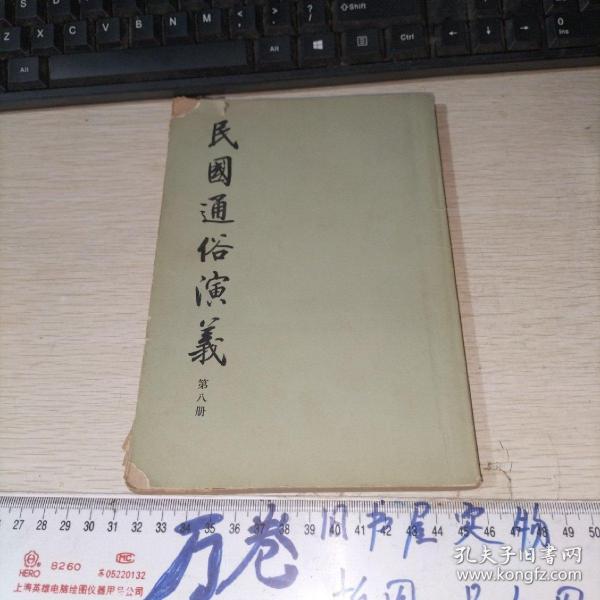 民國通俗演義
第八册
27 28 29 30 31 32 33 34 35 36 37 38 39 40 41 42 43 44 45 46 47 48 49 50
HERO 8260 MC 苏05220132
上海英雄电脑绘图仪器用品公司
万卷旧书屋实物
拍图
孔夫子旧书网
www.kongfz.com